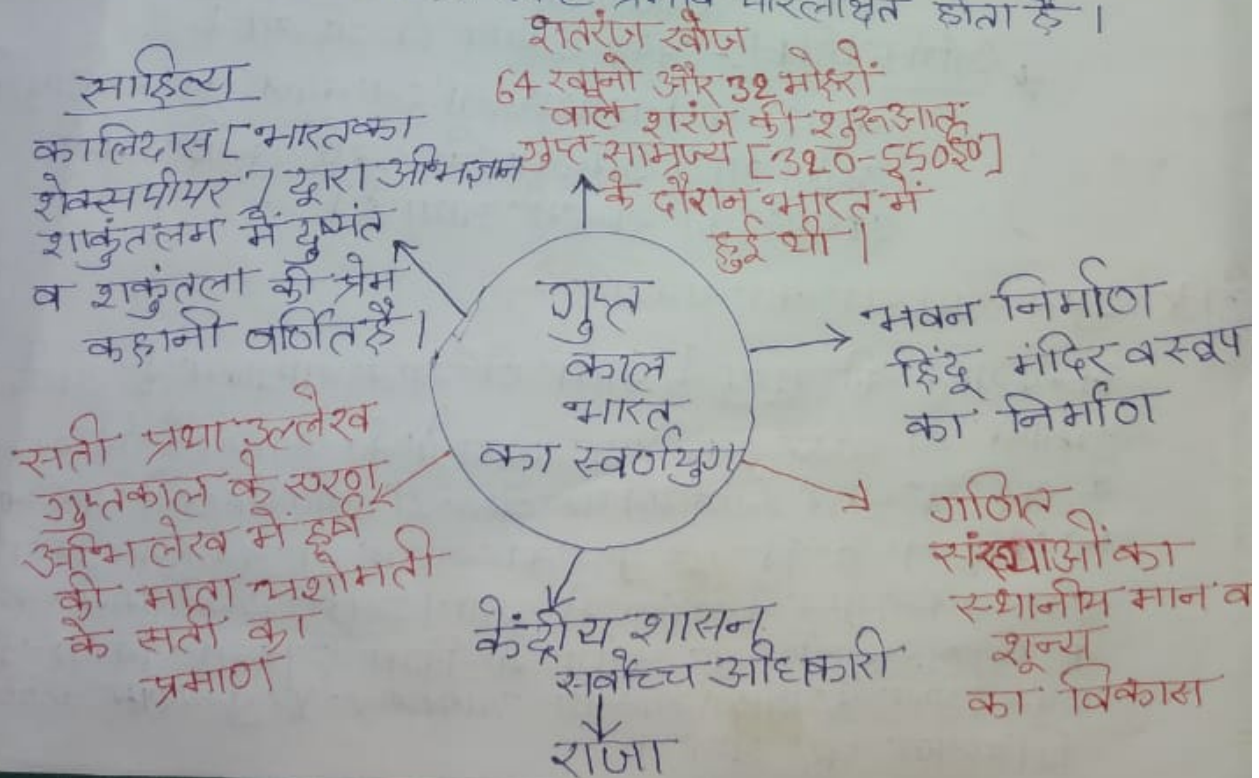 परिलक्षित होता है।
शतरंज खोज
64 खानो और 32 मोहरों
वाले शरंज की शुरूआत
गुप्त सामज्य [320-550ई०]
के दौरान भारत में
हुई थी।
साहित्य
कालिदास [भारतका
शेक्सपीयर] द्वारा अभिज्ञान
शाकुंतलम में दुष्यंत
व शकुंतला की प्रेम
कहानी वर्णित है।
गुप्त
काल
भारत
का स्वर्णयुग
भवन निर्माण
हिंदू मंदिर व स्तूप
का निर्माण
सती प्रथा उल्लेख
गुप्तकाल के एरण
अभिलेख में हर्ष
की माता यशोमती
के सती का
प्रमाण
गणित
संख्याओं का
स्थानीय मान व
शून्य
का विकास
केंद्रीय शासन
सर्वोच्च अधिकारी
राजा